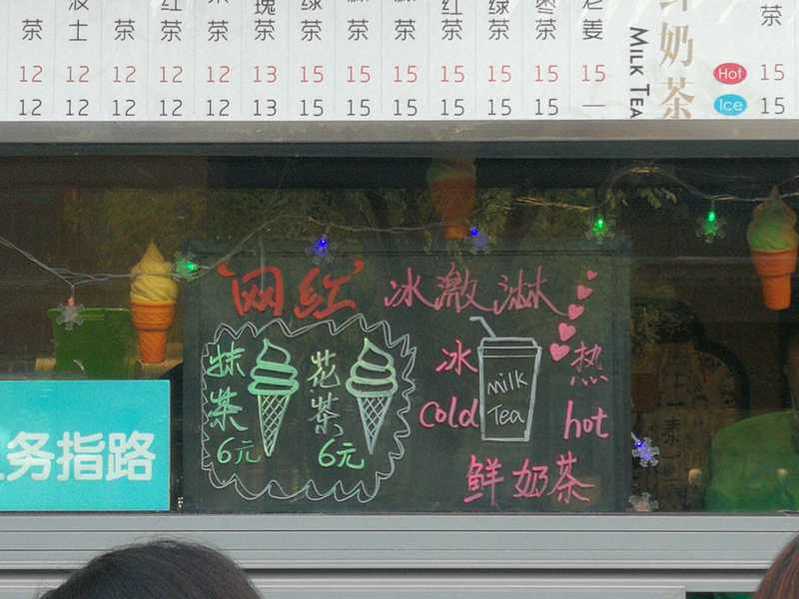 茶 士 茶 红茶 茶 瑰茶 绿茶 茶 茶 红茶 绿茶 枣茶 老姜 鲜奶茶 茶
MILK TEA
12 12 12 12 12 13 15 15 15 15 15 15 15 Hot 15
12 12 12 12 12 13 15 15 15 15 15 15 — Ice 15
网红 冰激淋
抹茶
6元
花茶
6元
冰 热
cold hot
milk
Tea
鲜奶茶
务指路